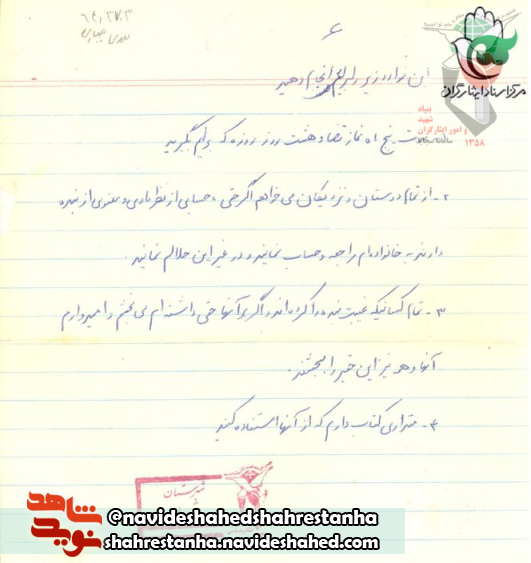 ۶
این موارد زیر را برایم انجام دهید
مرکز اسناد ایثارگران
بنیاد
شهید
و امور ایثارگران
۱۳۵۸
پنج ماه نماز قضا و هشت روز روزه که برایم بگیرید
۲- از تمام دوستان و نزدیکان می‌خواهم اگر حقی، حسابی از نظر مادی و معنوی از بنده
دارند به خانواده‌ام مراجعه و حساب نمایند و در غیر این حلالم نمایند.
۳- تمام کسانیکه غیبت بنده را کرده‌اند و اگر بر آنها حقی داشته‌ام می‌بخشم و امیدوارم
آنها هم نیز این حقیر را ببخشند.
۴- مقداری کتاب دارم که از آنها استفاده کنید
شهرستان
نوید شاهد
@navideshahedshahrestanha
shahrestanha.navideshahed.com